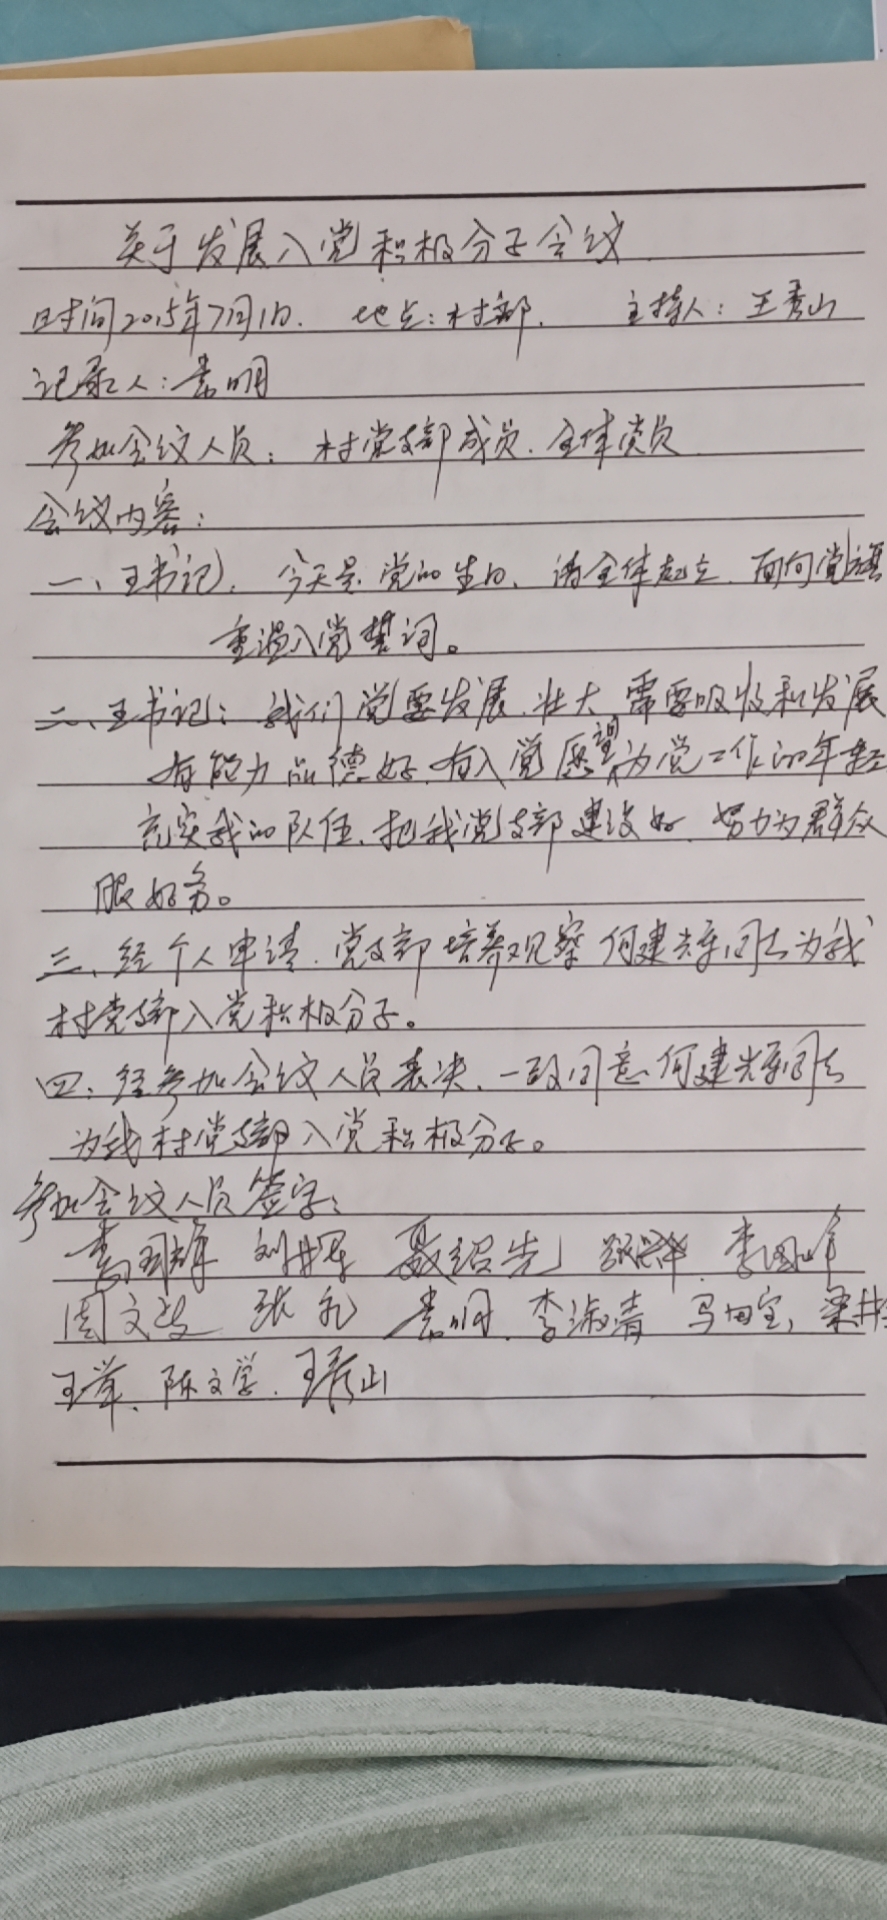 关于发展入党积极分子会议
时间2015年7月1日. 地点:村部. 主持人:王秀山
记录人:袁明
参加会议人员:村党支部成员.全体党员
会议内容:
一、王书记,今天是党的生日、请全体起立.面向党旗
重温入党誓词。
二、王书记:我们党要发展.壮大需要吸收和发展
有能力品德好.有入党愿望为党工作的年轻
充实我的队伍.把我党支部建设好.努力为群众
服好务。
三、经个人申请.党支部培养观察何建辉同志为我
村党支部入党积极分子。
四、经参加会议人员表决、一致同意何建辉同志
为我村党支部入党积极分子。
参加会议人员签字:
刘井军 聂绍先 李国峰
周文 张礼 袁明.李淑清 马田宝,梁井
王军、陈文学.王秀山